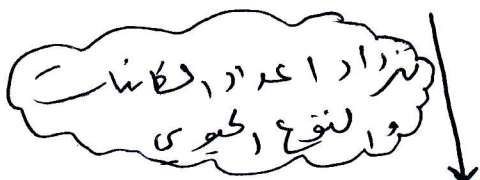 تزداد اعداد الكائنات
والتنوع الحيوى